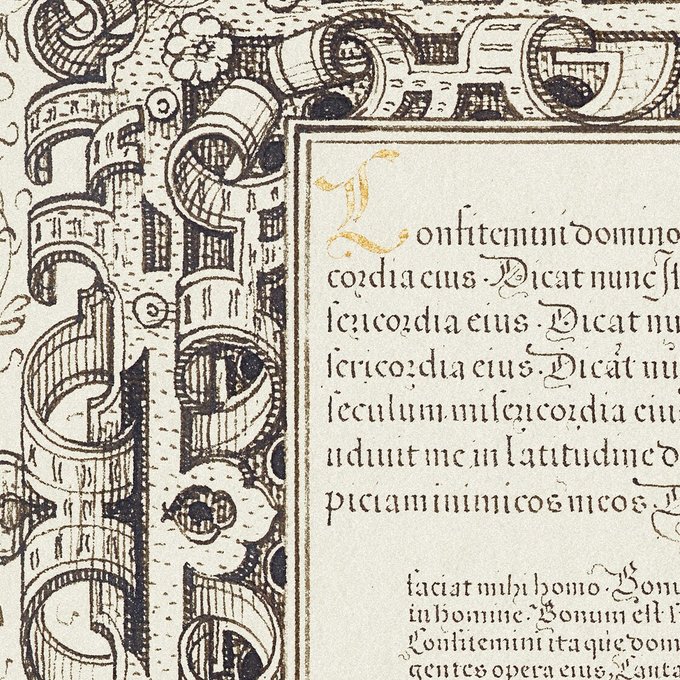 Confitemini domino
cordia eius. Dicat nunc Is
sericordia eius. Dicat nu
sericordia eius. Dicat nu
seculum misericordia eiu
udiuit me in latitudine d
piciam inimicos meos.
faciat mihi homo. Bonu
in homine. Bonum est s
Confitemini ita que dom
gentes opera eius, Canta